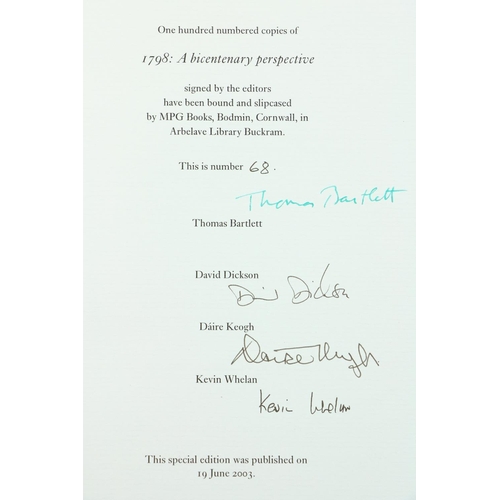 One hundred numbered copies of
1798: A bicentenary perspective
signed by the editors
have been bound and slipcased
by MPG Books, Bodmin, Cornwall, in
Arbelave Library Buckram.
This is number 68.
Thomas Bartlett
Thomas Bartlett
David Dickson
David Dickson
Dáire Keogh
Dáire Keogh
Kevin Whelan
Kevin Whelan
This special edition was published on
19 June 2003.